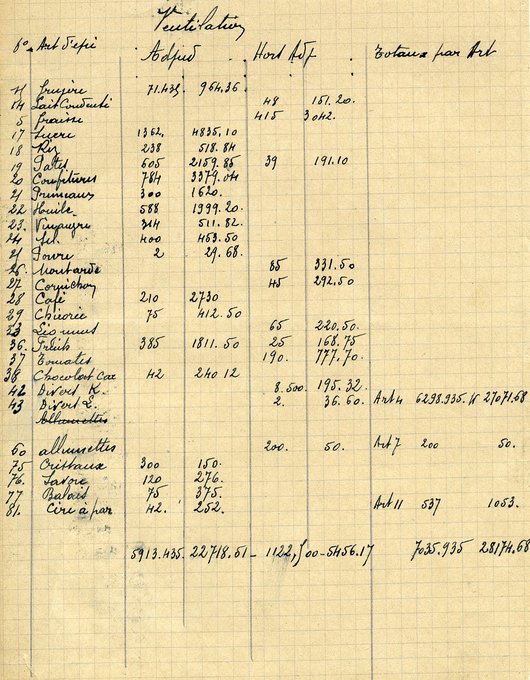 Ventilation
No Art d'épi Adjud Hort Adp Totaux par Art
gruyère 71.435 964.36
14 Lait Condensé 48 151.20
5 graisse 415 3042.
17 Sucre 1362. 4835.10
18 Riz 238 518.84
19 Pates 605 2159.85 39 191.10
20 Confitures 784 3379.04
21 Pruneaux 300 1620.
22 Huile 588 1999.20
23. Vinaigre 314 511.82
24 Sel 400 463.50
25 Poivre 2 29.68
26. Moutarde 85 331.50
27 Cornichon 45 292.50
28 Café 210 2730
29 Chicorée 75 412.50
33 Légumes 65 220.50
36. Fruits 385 1811.50 25 168.75
37 Tomates 190. 777.70.
38 Chocolat Cae 42 240.12
42 Divert K. 8.500 195.32
43 Divert L. 2. 36.60. Art 4 6298.935. 27071.68
Allumettes
60 allumettes 200. 50. Art 7 200 50.
75 Cristaux 300 150.
76. Savon 120 276.
77 Balais 75 375.
81. Cire à par 42. 252. Art 11 537 1053.
5913.435. 22718.51 - 1122,500 - 5456.17 7035.935 28174.68